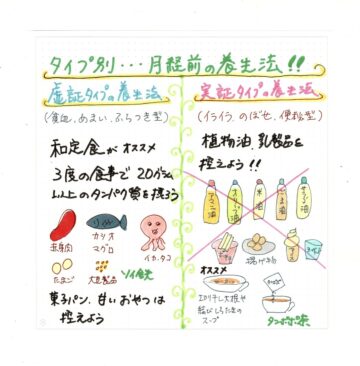 タイプ別・・・月経前の養生法!!
虚証タイプの養生法
(貧血、めまい、ふらつき型)
和定食がオススメ
3度の食事で20グラム
以上のタンパク質を摂ろう
赤身肉
カツオ
マグロ
イカ・タコ
たまご
大豆製品
菓子パン、甘いおやつは
控えよう
実証タイプの養生法
(イライラ、のぼせ、便秘型)
植物油、乳製品を
控えよう!!
オリーブ油
米油
ごま油
サラダ油
揚げ物
オススメ
切り干し大根や
結びしらたきの
スープ
タンポポ茶